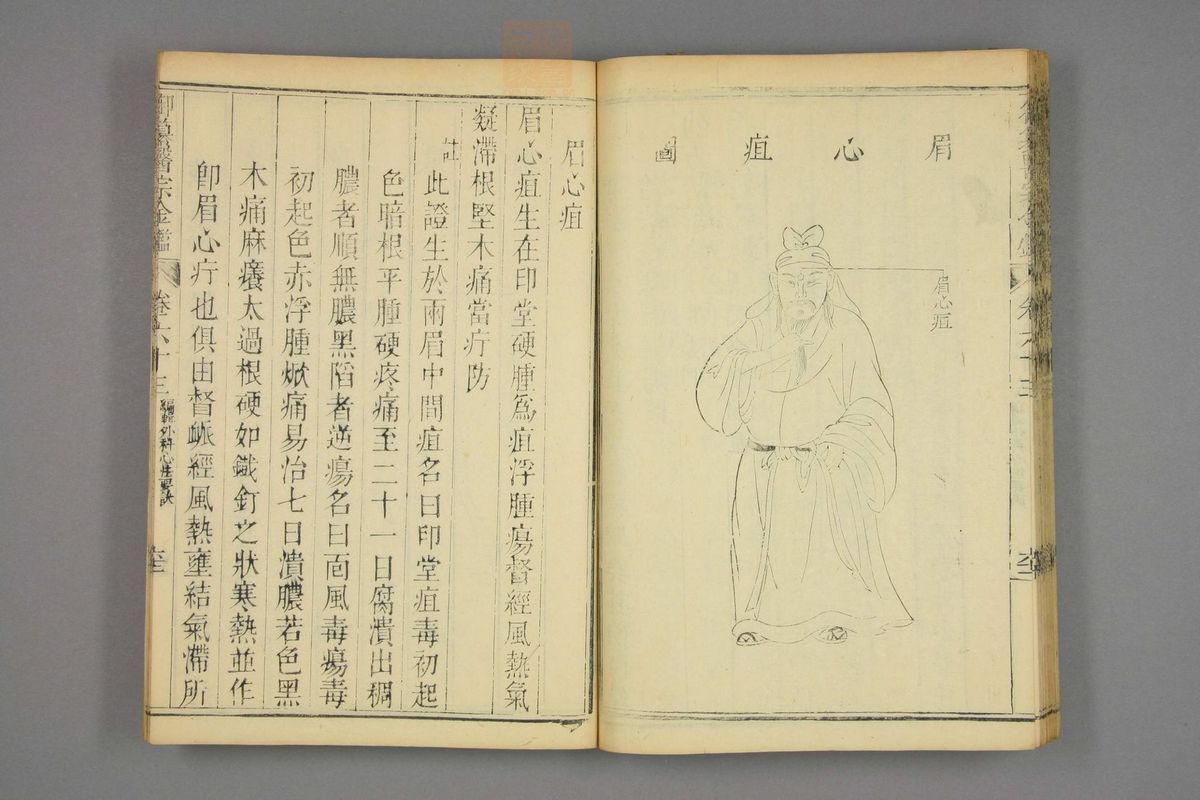 眉心疽圖
眉心疽
卷六十三
眉心疽
眉心疽生在印堂硬腫爲疽浮腫瘍督經風熱氣
凝滯根堅木痛當疔防
註此證生於兩眉中間疽名曰印堂疽毒初起
色暗根平腫硬疼痛至二十一日腐潰出稠
膿者順無膿黑陷者逆瘍名曰面風毒瘍毒
初起色赤浮腫焮痛易治七日潰膿若色黑
木痛麻癢太過根硬如鐵釘之狀寒熱並作
卽眉心疔也俱由督衇經風熱壅結氣滯所
御纂醫宗金鑑 卷六十三 編輯外科心法要訣